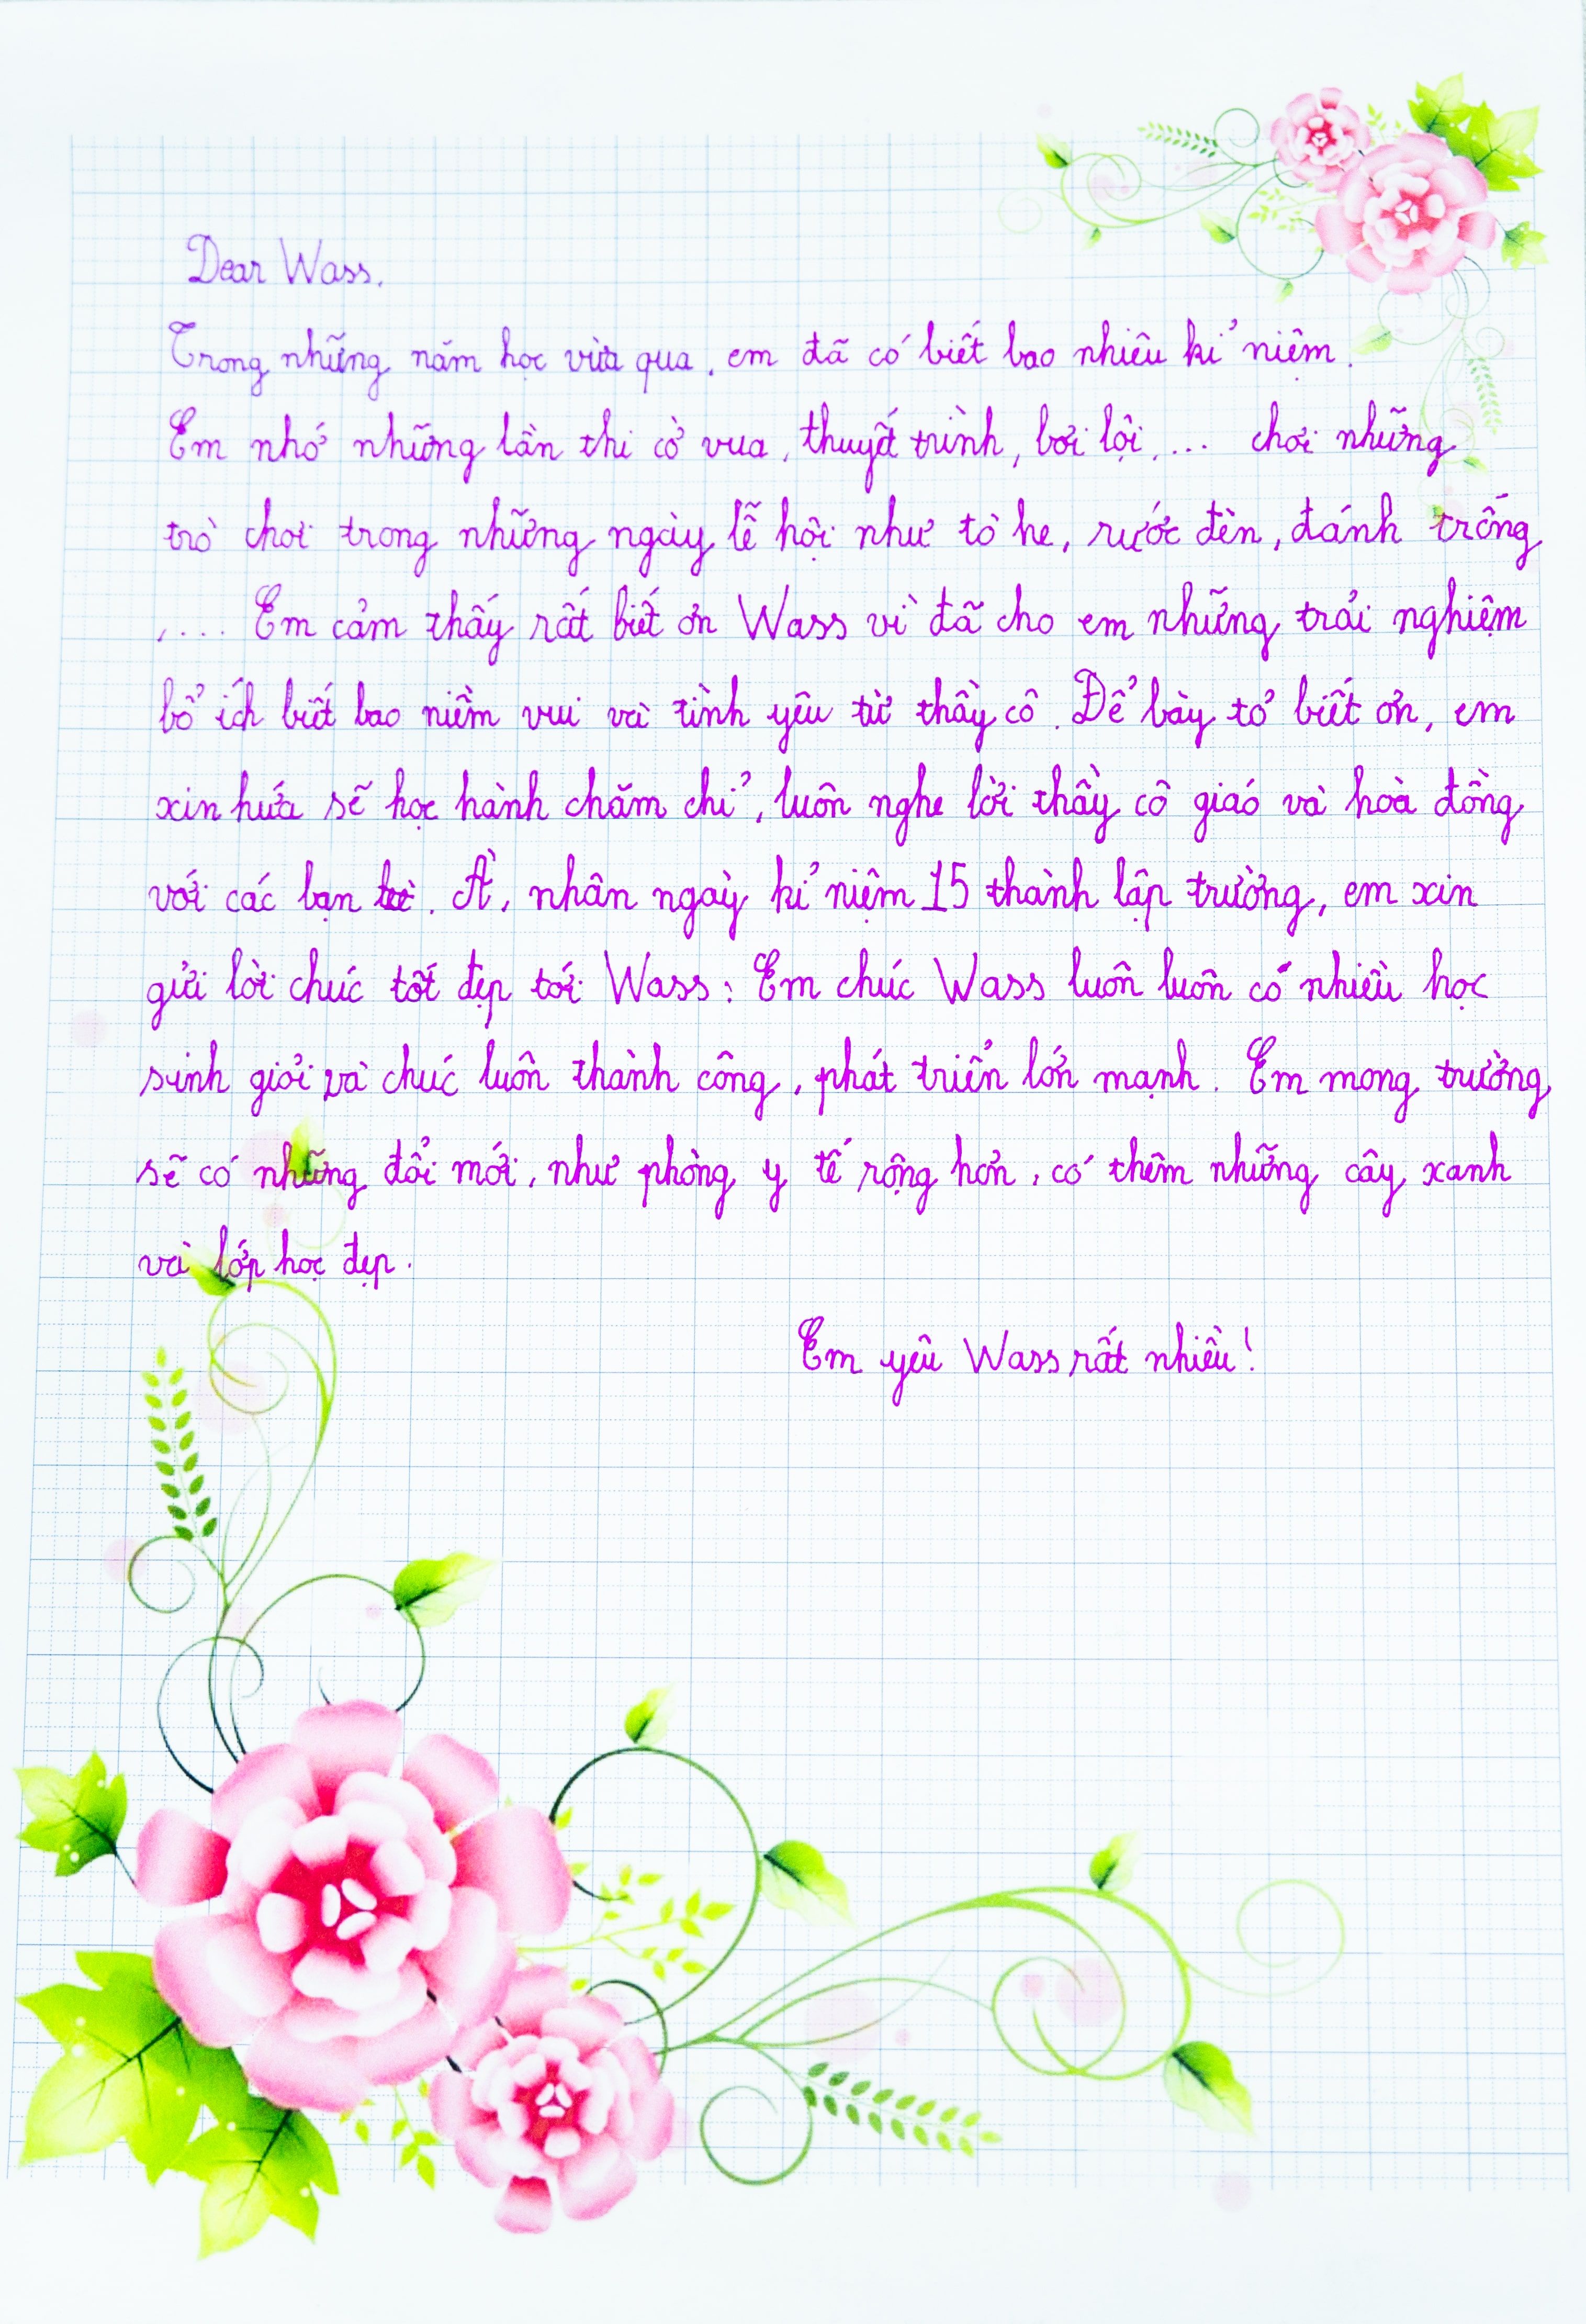 Dear Wass,
Trong những năm học vừa qua, em đã có biết bao nhiêu kỉ niệm.
Em nhớ những lần thi cờ vua, thuyết trình, bơi lội,... chơi những
trò chơi trong những ngày lễ hội như tò he, rước đèn, đánh trống
,.... Em cảm thấy rất biết ơn Wass vì đã cho em những trải nghiệm
bổ ích biết bao niềm vui và tình yêu từ thầy cô. Để bày tỏ biết ơn, em
xin hứa sẽ học hành chăm chỉ, luôn nghe lời thầy cô giáo và hoà đồng
với các bạn bè. À, nhân ngày kỉ niệm 15 thành lập trường, em xin
gửi lời chúc tốt đẹp tới Wass: Em chúc Wass luôn luôn có nhiều học
sinh giỏi và chúc luôn thành công, phát triển lớn mạnh. Em mong trường
sẽ có những đổi mới, như phòng y tế rộng hơn, có thêm những cây xanh
và lớp học đẹp.
Em yêu Wass rất nhiều!